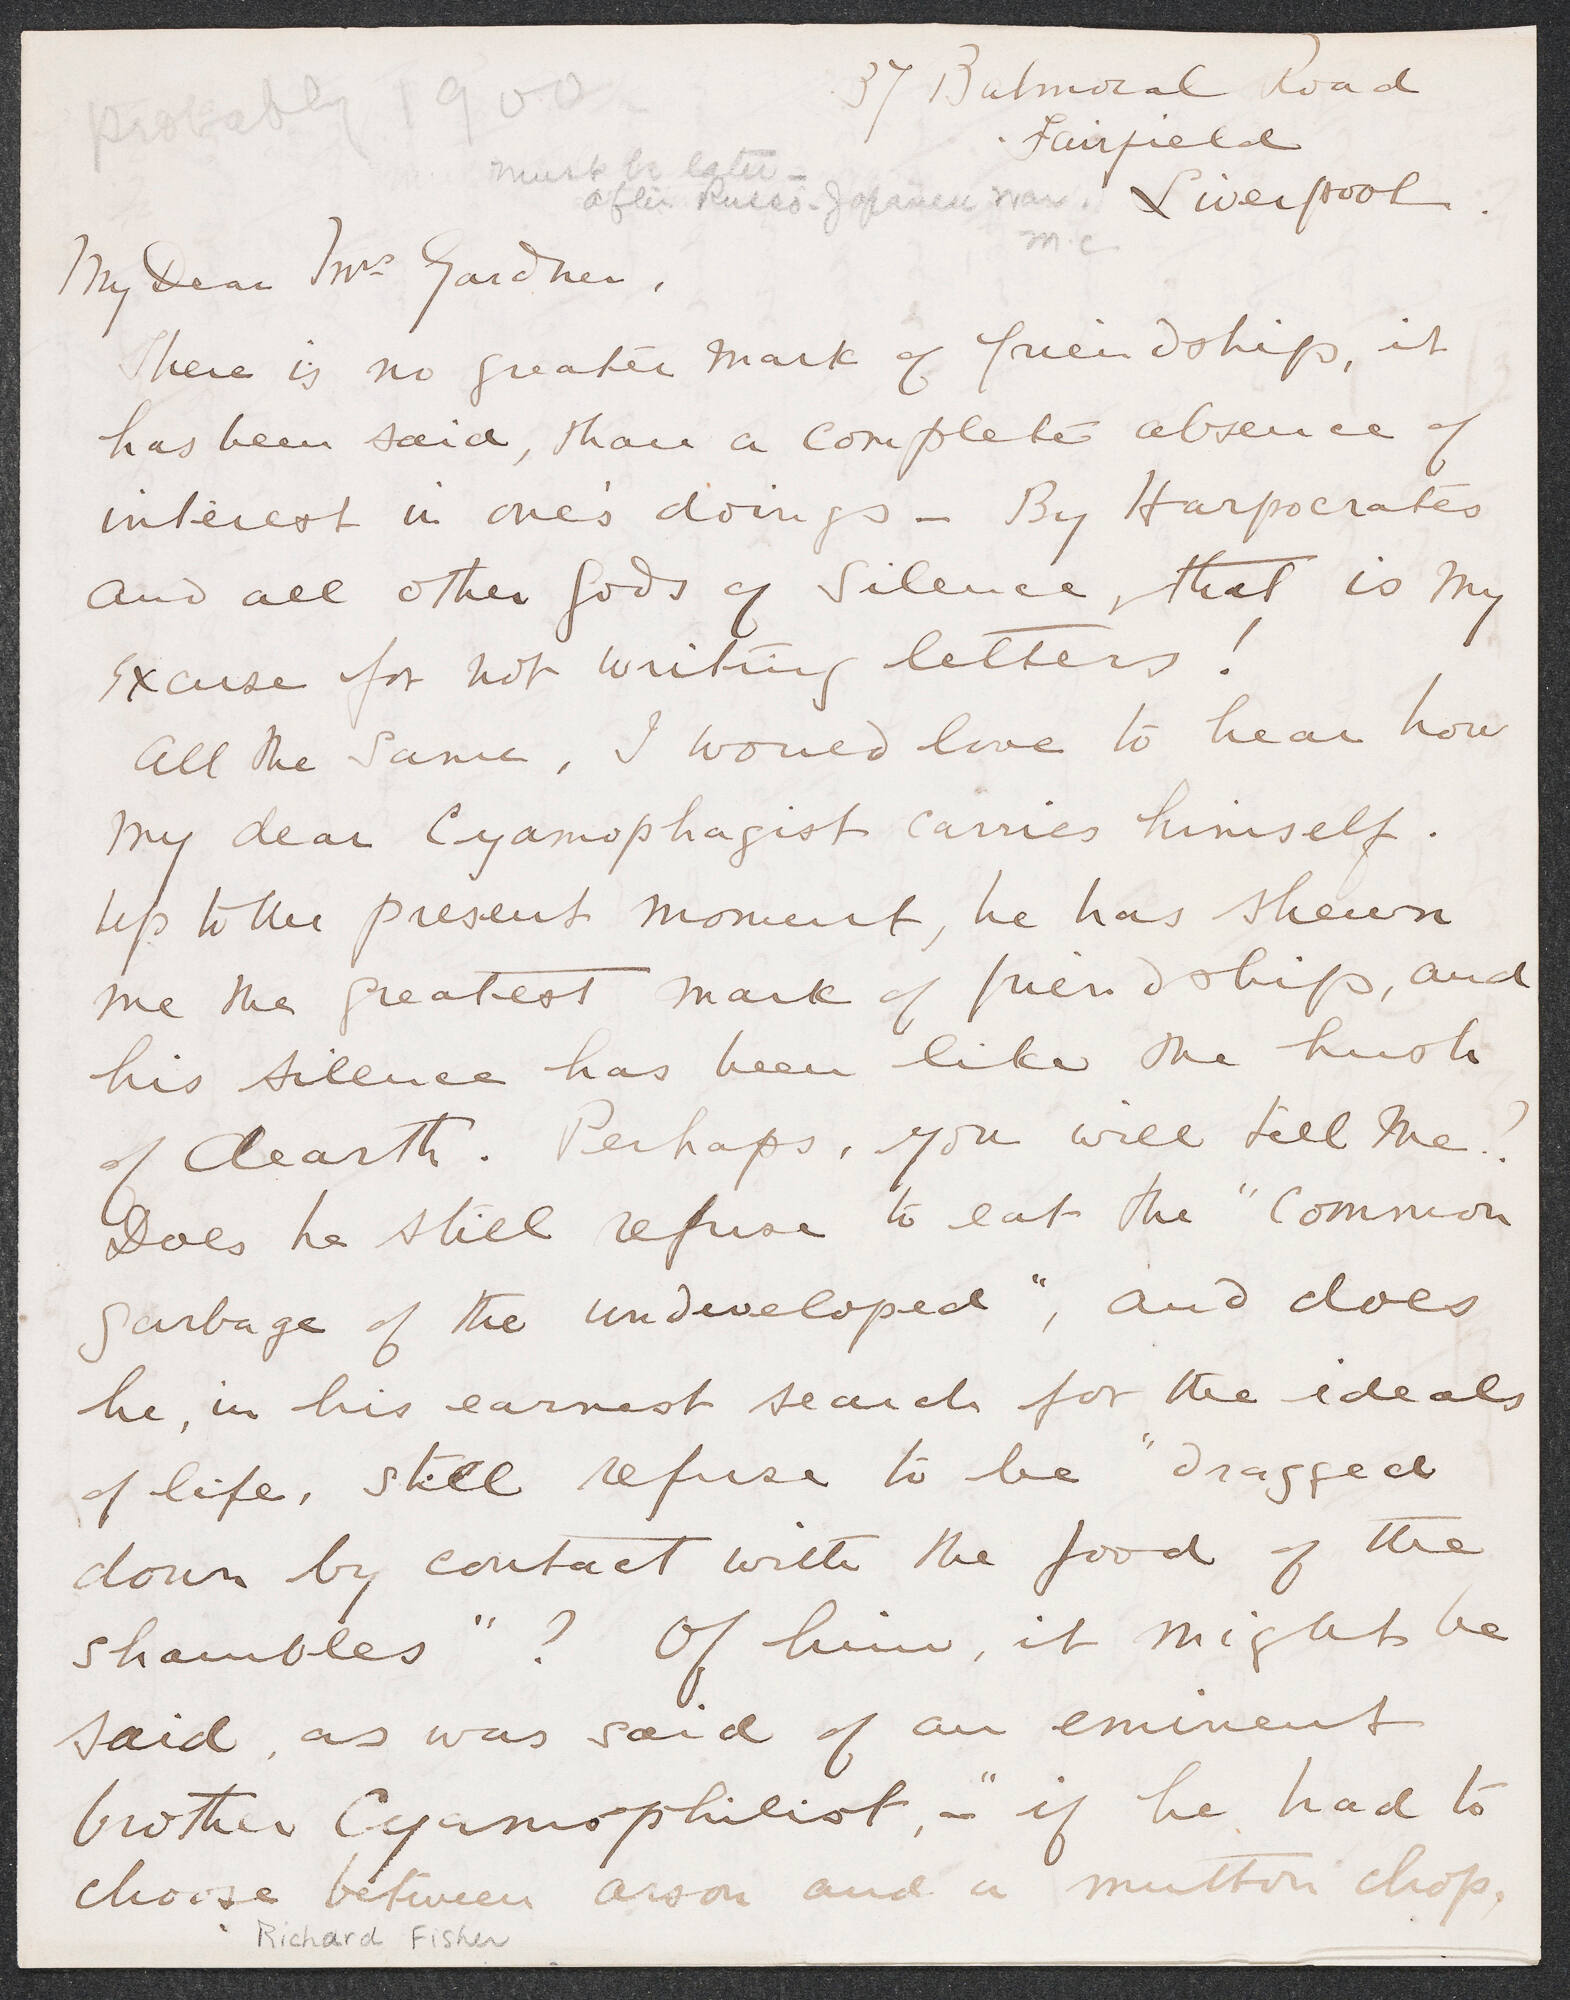 probably 1900
37 Balmoral Road
Fairfield
Liverpool.
must be later –
after Russo-Japanese war.
M.C.
My Dear Mrs Gardner,
There is no greater mark of friendship, it
has been said, than a complete absence of
interest in one's doings – By Harpocrates
and all other Gods of Silence, that is my
excuse for not writing letters!
All the same, I would love to hear how
my dear Cyamophagist carries himself.
Up to the present moment, he has shewn
me the greatest mark of friendship, and
his silence has been like the hush
of dearth. Perhaps, you will tell me?
Does he still refuse to eat the "common
garbage of the undeveloped", and does
he, in his earnest search for the ideals
of life, still refuse to be "dragged
down by contact with the food of the
shambles"? Of him, it might be
said, as was said of an eminent
brother Cyamophilist, – "if he had to
choose between arson and a mutton chop,
Richard Fisher